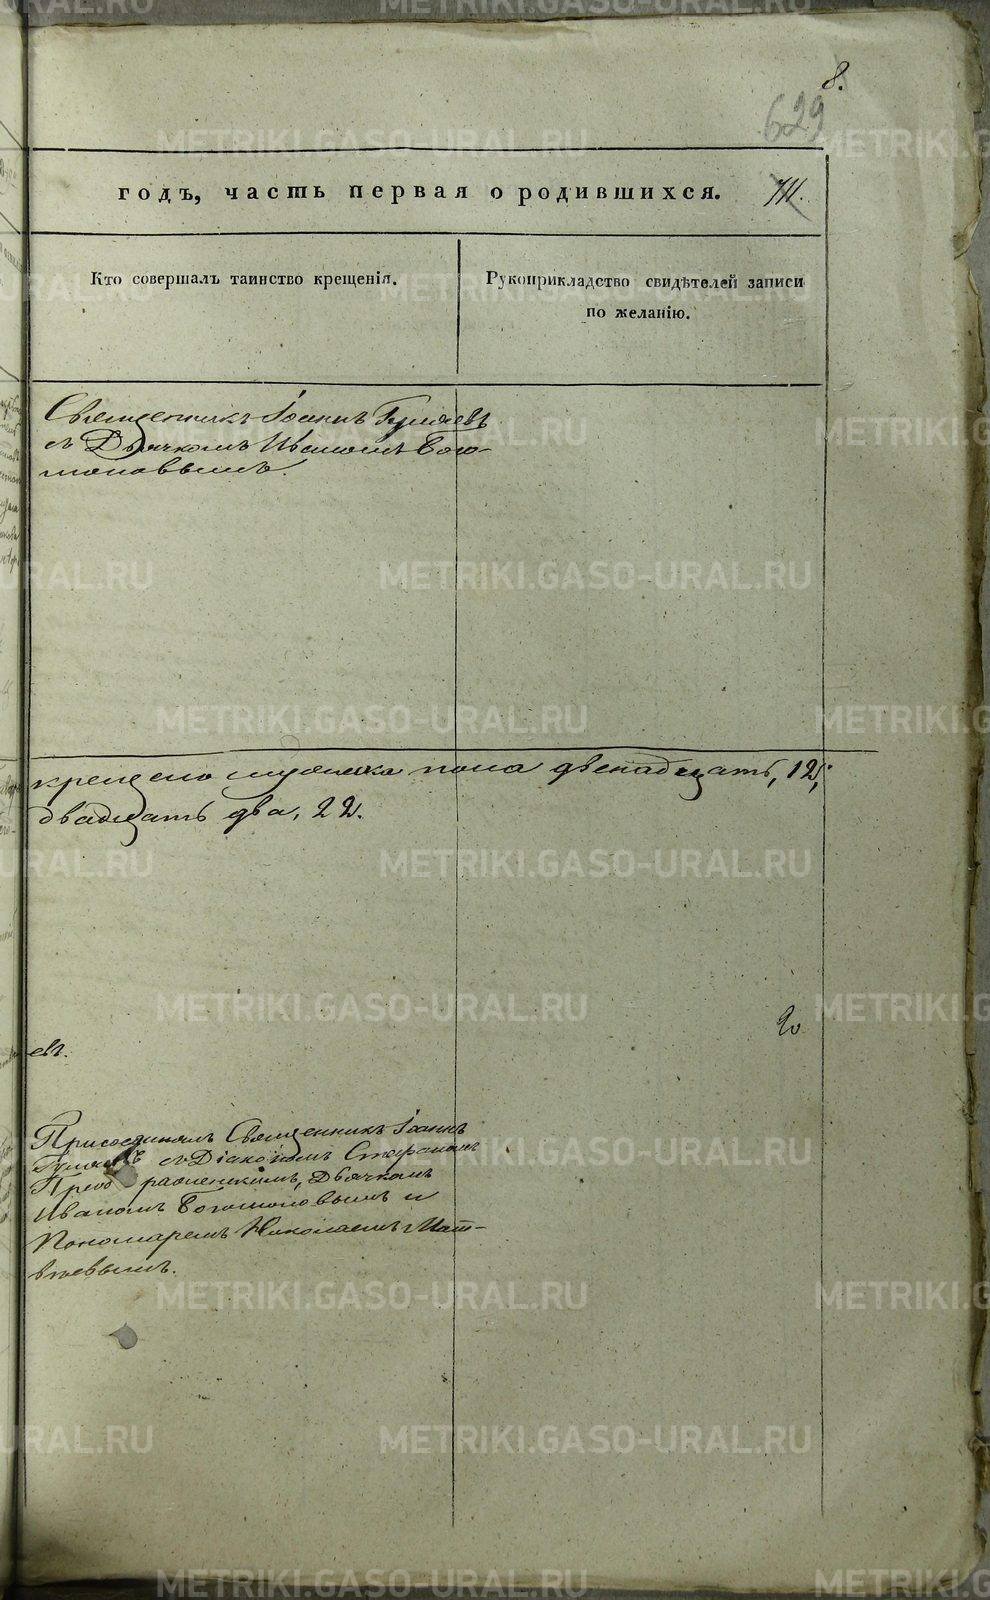 8.
629
годъ, часть первая о родившихся.
Кто совершалъ таинство крещенія.
Рукоприкладство свидѣтелей записи
по желанію.
Священникъ Іоаннъ Гуляевъ
съ Дьячкомъ Иваномъ Бого-
моловымъ.
крещено мужеска пола двенадцать, 12,
двадцать два, 22.
евъ.
20
Присоединялъ Священникъ Іоаннъ
съ Діакономъ Стефаномъ
Дьячкомъ
Иваномъ Богомоловымъ и
Пономаремъ Николаемъ Мат-
вѣевымъ.
METRIKI.GASO-URAL.RU